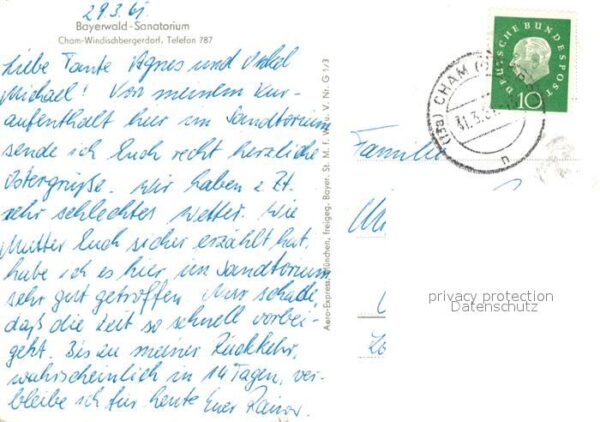 29.3.61
Bayerwald-Sanatorium
Cham-Windischbergerdorf, Telefon 787
Liebe Tante Agnes und Onkel
Michael! Von meinem Kur-
aufenthalt hier im Sanatorium
sende ich Euch recht herzliche
Ostergrüße. Wir haben z. Zt.
sehr schlechtes Wetter. Wie
Mutter Euch sicher erzählt hat,
habe ich es hier im Sanatorium
sehr gut getroffen. Nur schade,
daß die Zeit so schnell vorbei-
geht. Bis zu meiner Rückkehr,
wahrscheinlich in 14 Tagen, ver-
bleibe ich für heute Euer Rainer.
Aero-Express, München, Freigeg. Bayer. St. M. f. W. u. V. Nr. G 1/3
DEUTSCHE BUNDESPOST
10
(13a) CHAM
31.3.61
n
Familie
privacy protection
Datenschutz